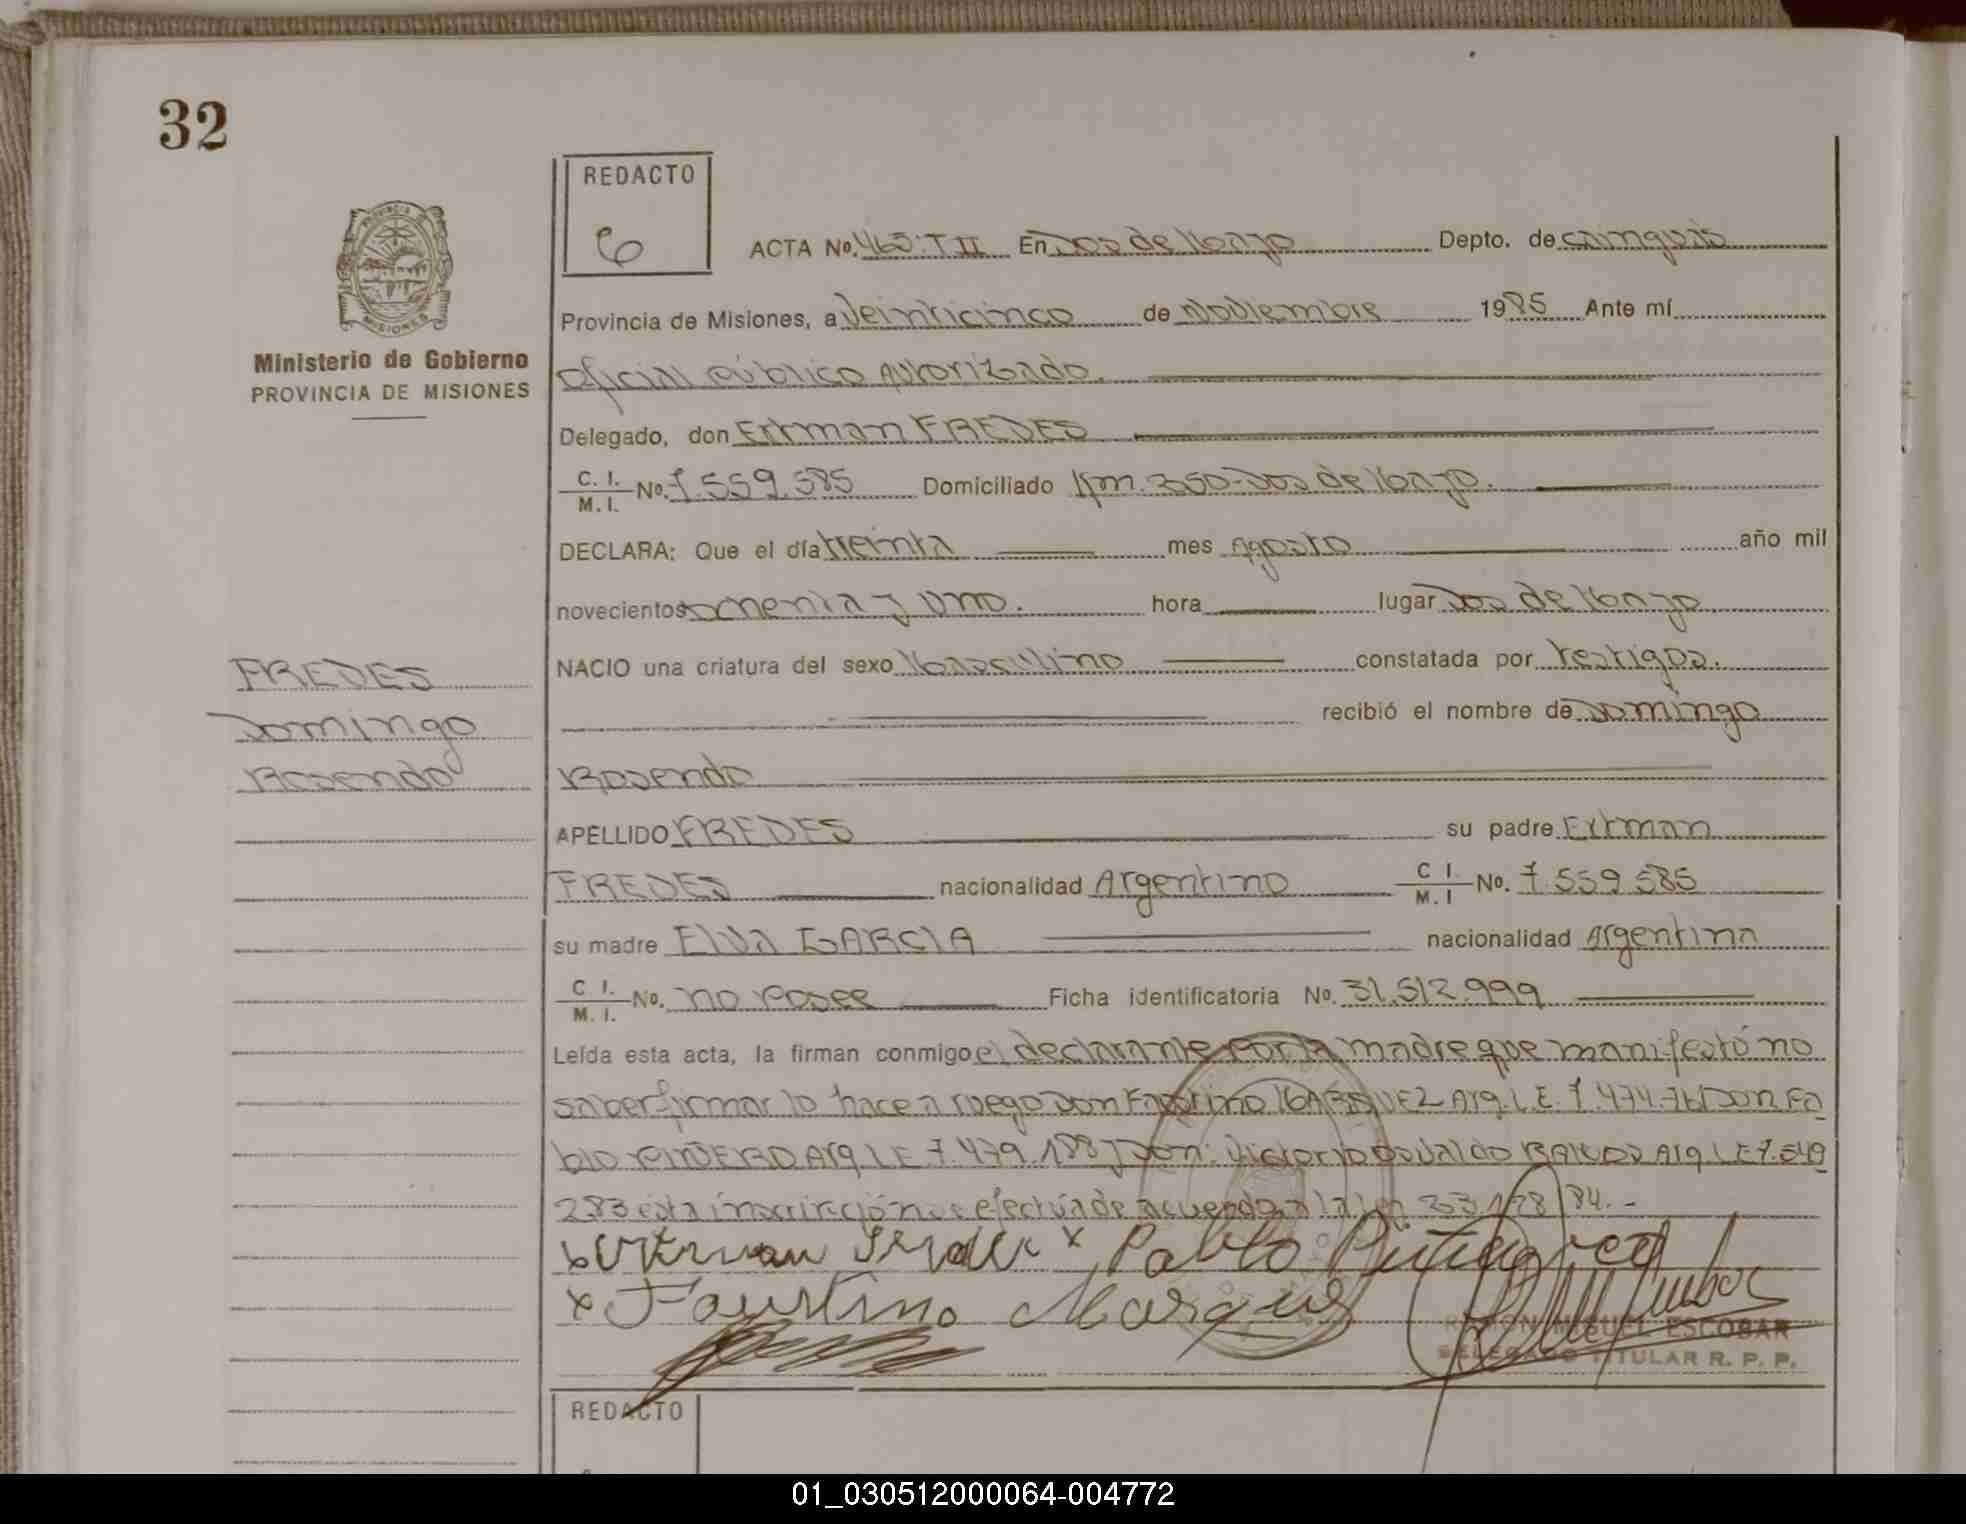 32
REDACTO
ACTA Nº. 465·T II En Dos de Mayo Depto. de Cainguás
Provincia de Misiones, a Veinticinco de Noviembre 1985 Ante mí
Oficial Público Autorizado.
Ministerio de Gobierno
PROVINCIA DE MISIONES
Delegado, don Ertman FREDES
C. I.
M. I. No. 7.559.585 Domiciliado Km. 350-Dos de Mayo.
DECLARA: Que el día treinta mes Agosto año mil
novecientos ochenta y uno. hora lugar Dos de Mayo
NACIO una criatura del sexo Masculino constatada por testigos.
recibió el nombre de Domingo
Rosendo
FREDES
Domingo
Rosendo
APELLIDO FREDES su padre Ertman
FREDES nacionalidad Argentino C I.
M. I No. 7.559.585
su madre Elva GARCIA nacionalidad Argentina
C I.
M. I. No. no posee Ficha identificatoria No. 31.512.999
Leída esta acta, la firman conmigo el declarante por la madre que manifestó no
saber firmar lo hace a ruego Don Faustino MARQUEZ Arg. L.E. 7.474.761 Don Pa
blo Arg L E 7.479.188 y Don: Victorio Osvaldo Arg. L E 7.549
283 esta inscripción se efectúa de acuerdo a la ley 33 /84.-
x Ertman Fredes x Pablo
x Faustino Marques
RAMON MIGUEL ESCOBAR
DELEGADO TITULAR R. P. P.
REDACTO
01_030512000064-004772